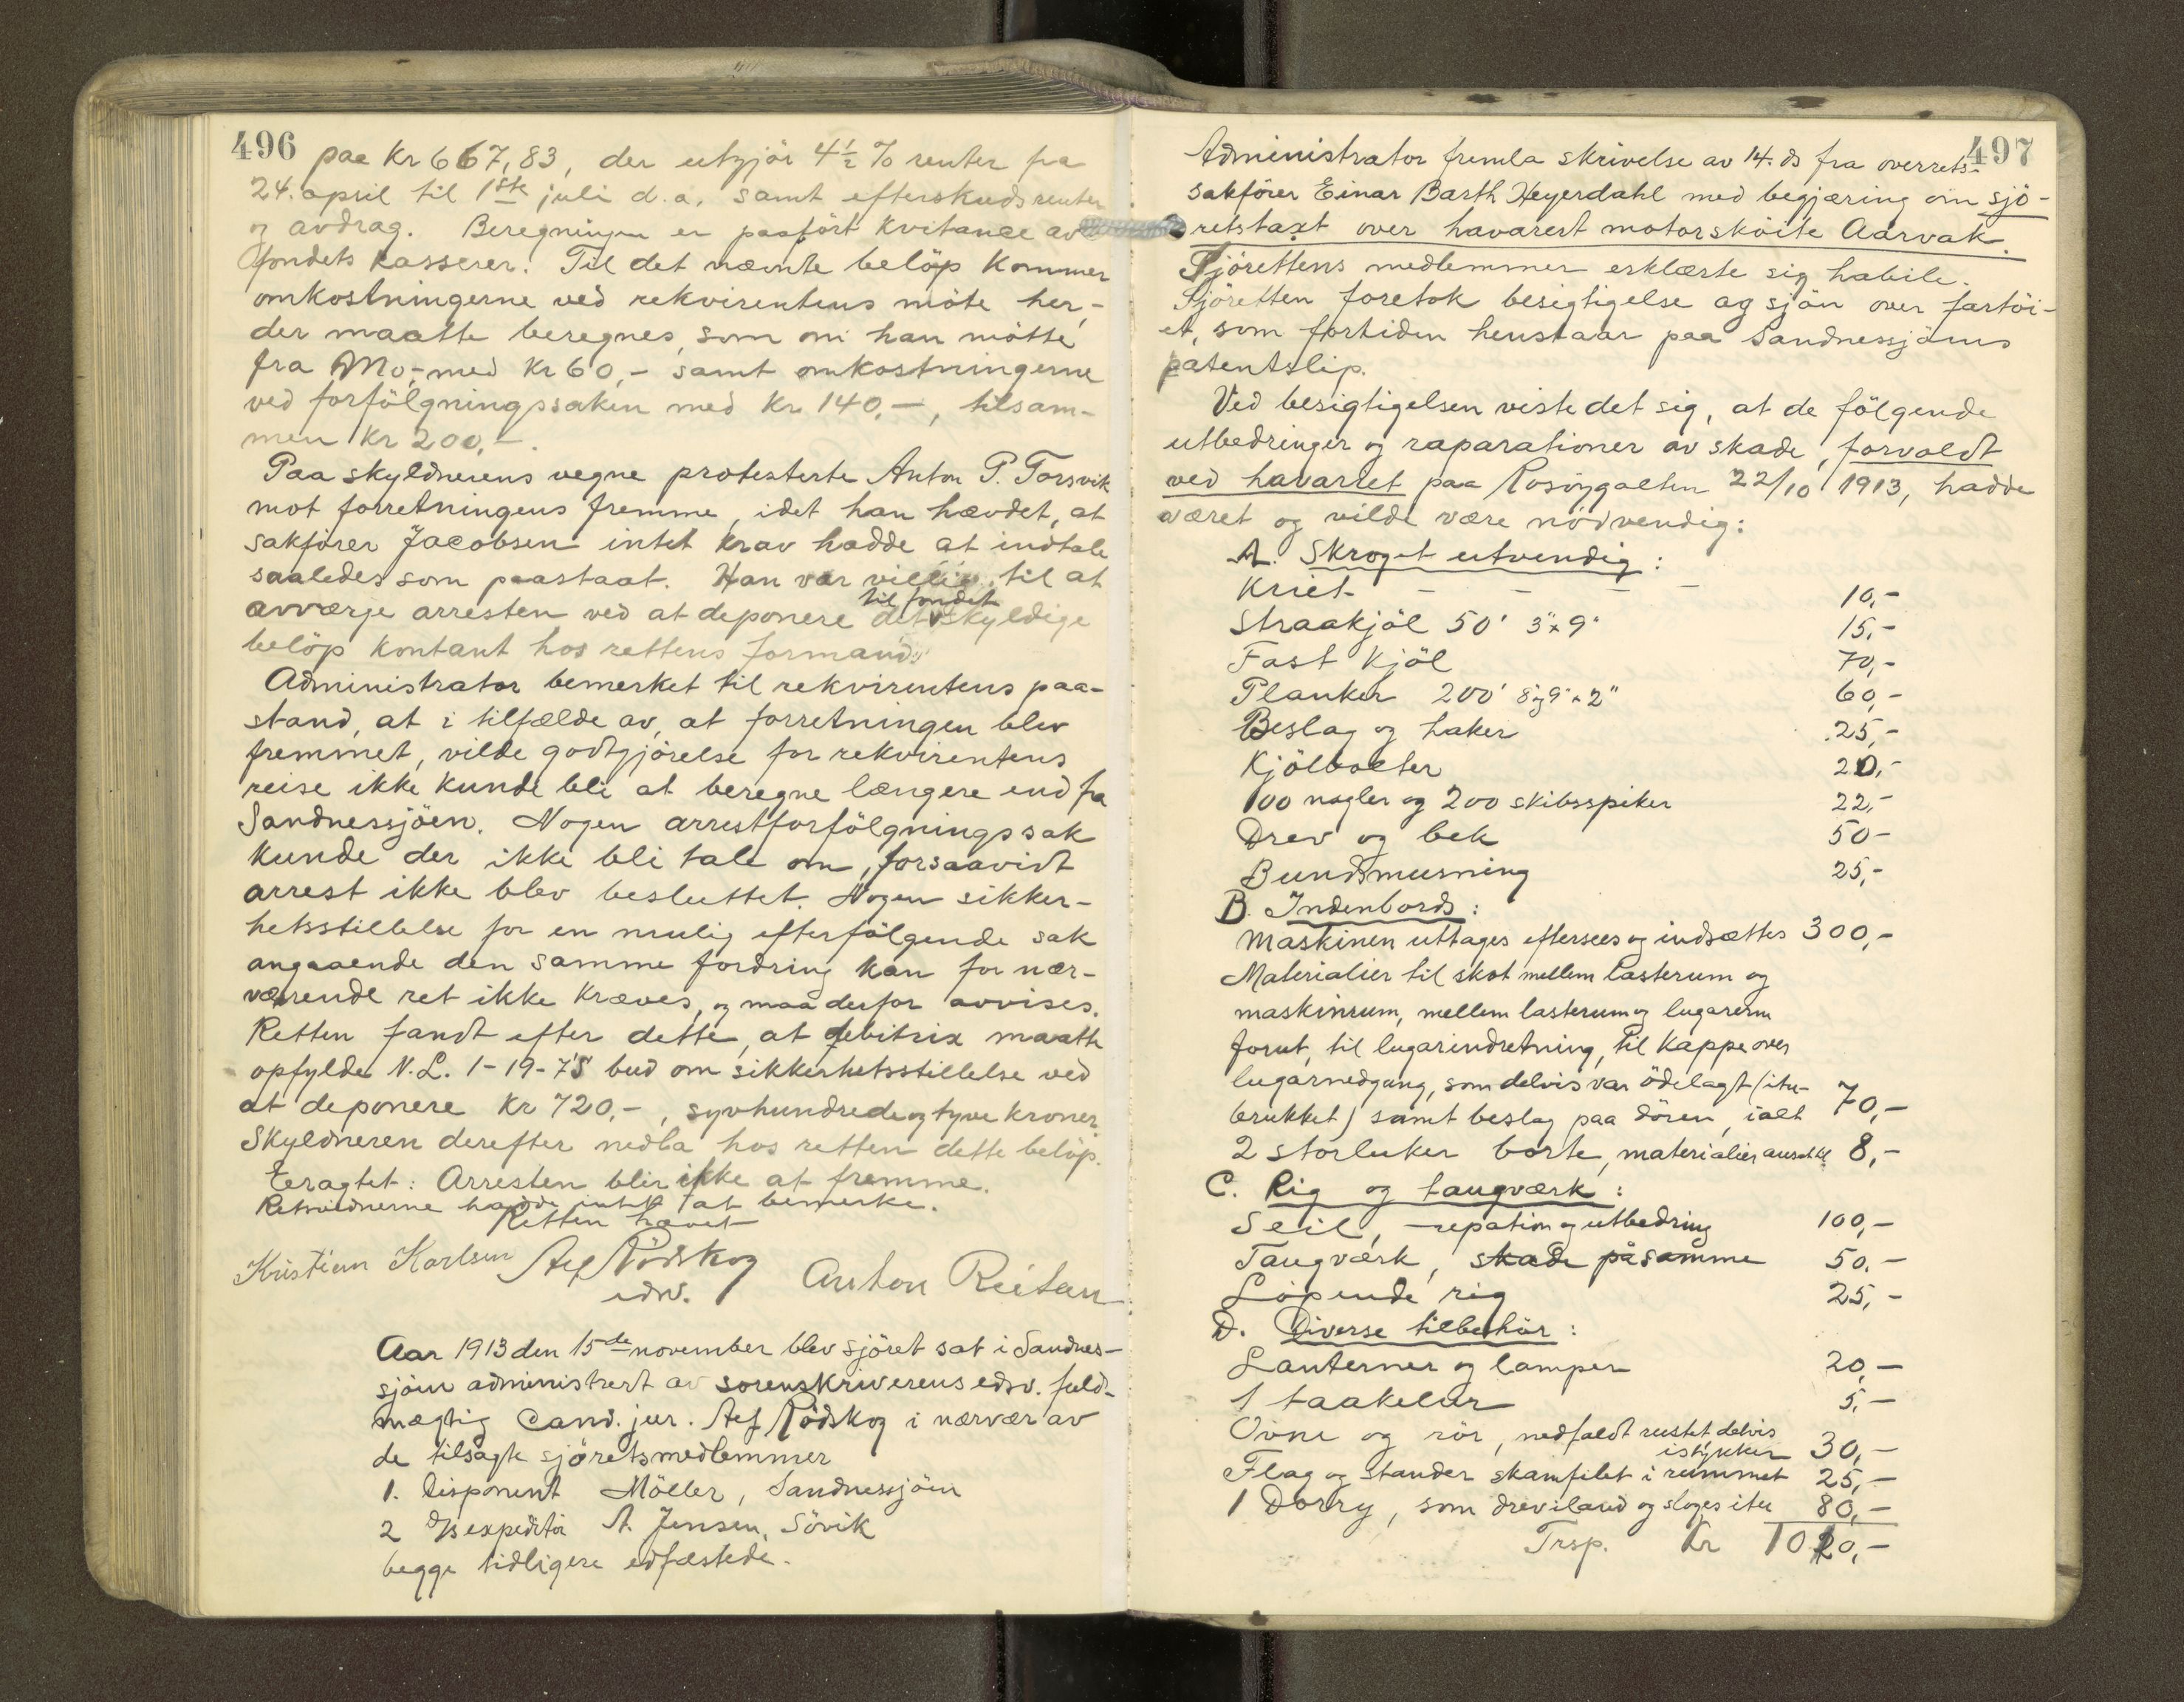 496
paa Kr 667,83, der utgjör 4½ % renter fra
24. april til 1ste juli d.a. samt efterskudsrenter
og avdrag. Beregningen er paafört kvitance av
fondets kasserer. Til det nævnte belöp kommer
omkostningerne ved rekvirentens möte her,-
der maatte beregnes, som om han mötte
fra Mo,- med Kr 60,- samt omkostningerne
ved forfölgningssaken med Kr 140,-, tilsam-
men Kr 200,-.
Paa skyldnerens vegne protesterte Anton P. Torsvik
mot forretningens fremme, idet han hævdet, at
sakförer Jacobsen intet krav hadde at indtale
saaledes som paastaat. Han var villig til at
avværge arresten ved at deponere det til fondet skyldige
belöp kontant hos rettens formand.
Administrator bemerket til rekvirentens paa-
stand, at i tilfælde av, at forretningen blev
fremmet, vilde godtgjörelse for rekvirentens
reise ikke kunde bli at beregne længere end fra
Sandnessjöen. Nogen arrestforfölgningssak
kunde der ikke bli tale om, forsaavidt
arrest ikke blev besluttet. Nogen sikker-
hetsstillelse for en mulig efterfölgende sak
angaaende den samme fordring kan for nær-
værende ret ikke kræves, og maa derfor avvises.
Retten fandt efter dette, at debitrix maatte
opfylde N.L. 1-19-7's bud om sikkerhetsstillelse ved
at deponere Kr 720,-, syvhundredeogtyve kroner.
Skyldneren derefter nedla hos retten dette belöp.
Eragtet: Arresten blir ikke at fremme.
Retsvidnerne hadde intet at bemerke.
Retten hævet
Kristian Karlsen Alf Rödskog Anton Reitan
edsv.
Aar 1913 den 15de november blev sjöret sat i Sandnes-
sjöen administrert av sorenskriverens edsv. fuld-
mægtig Cand. jur. Alf Rödskog i nærvær av
de tilsagte sjöretsmedlemmer
1. Disponent Möller, Sandnessjöen
2 Dsexpeditör A. Jensen, Sövik
begge tidligere edfæstede.
497
Administrator fremla skrivelse av 14. ds fra overrets-
sakförer Einar Barth Heyerdahl med begjæring om sjö-
retstaxt over havarert motorsköite Aarvak.
Sjörettens medlemmer erklærte sig habile.
Sjöretten foretok besigtigelse og sjön over fartöi-
et, som fortiden henstaar paa Sandnessjöens
patentslip.
Ved besigtigelsen viste det sig, at de fölgende
utbedringer og raparationer av skade, forvoldt
ved havariet paa Rosöygalten 22/10 1913, hadde
været og vilde være nödvendig:
A. Skroget utvendig:
Kriet - - - 10,-
Straakjöl 50' 3"x9" 15,-
Fast kjöl 70,-
Planker 200' 8"og9"x2" 60,-
Beslag og haker 25,-
Kjölbolter 20,-
100 nagler og 200 skibsspiker 22,-
Drev og bek 50-
Bundsmurning 25,-
B. Indenbords:
Maskinen uttages eftersees og indsættes 300,-
Materialier til skot mellem lasterum og
maskinrum, mellem lasterum og lugarerne
forut, til lugarindretning, til kappe over
lugarnedgang, som delvis var ödelagt (itu-
brukket) samt beslag paa dören, ialt 70,-
2 storluker borte, materialier ansat til 8,-
C. Rig og taugværk:
Seil, -repation og utbedring 100,-
Taugværk, skade på samme 50.-
Löpende rig 25,-
D. Diverse tilbehör:
Lanterner og lamper 20,-
1 taakelur 5,-
Ovne og rör, nedfaldt rustet, delvis
istykker 30,-
Flag og stander skamfilet i rummet 25,-
1 Dorry, som drev iland og sloges itu 80,-
Trsp. Kr 1020,-